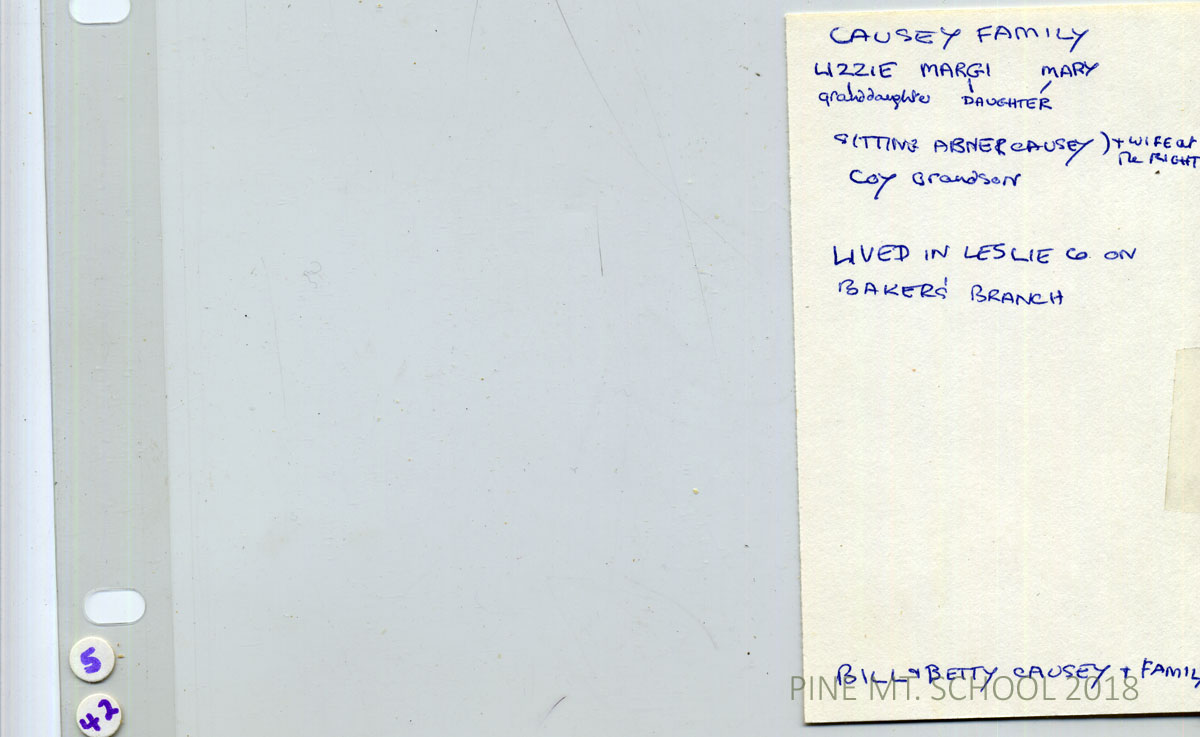 CAUSEY FAMILY
LIZZIE MARGI MARY
granddaughter DAUGHTER
SITTING ABNER CAUSEY) + WIFE at
The RIGHT
COY GrandsoN
LIVED IN LESLIE Co. ON
BAKERS' BRANCH
BILL + BETTY CAUSEY + FAMILY
PINE MT. SCHOOL 2018
5
42